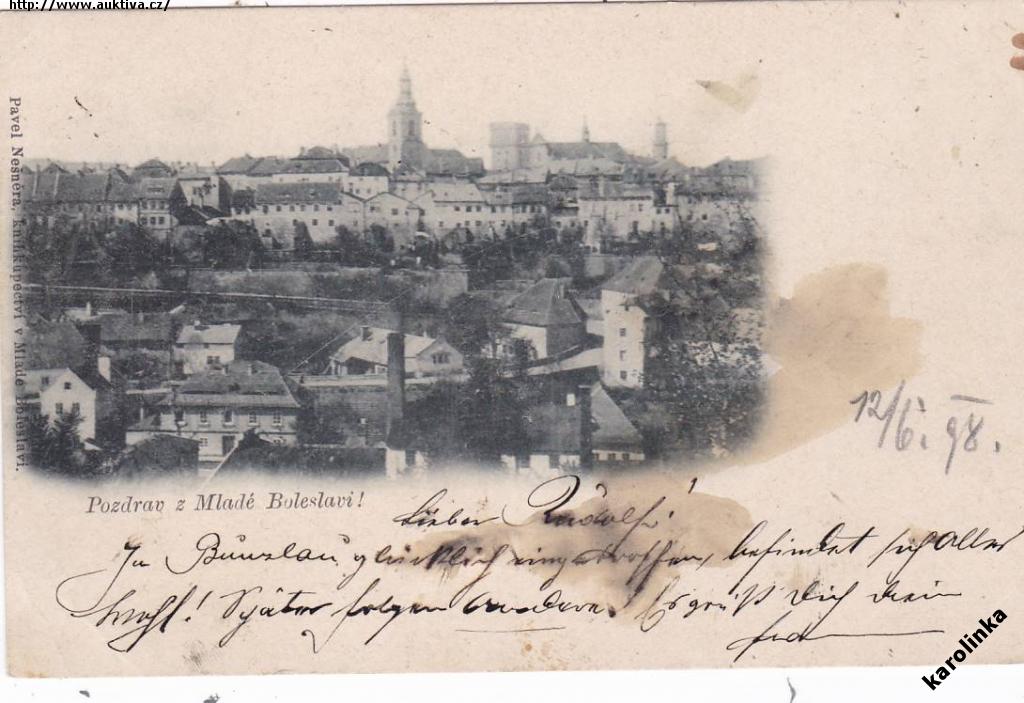 http://www.auktiva.cz/
Pavel Nesněra, knihkupectví v Mladé Boleslavi.
12/6. 98.
Pozdrav z Mladé Boleslavi!
Lieber Rudolf!
In Bunzlau glücklich eingetroffen, befindet sich Alles
wohl! Später folgen Andere. Es grüßt Dich Dein
karolinka